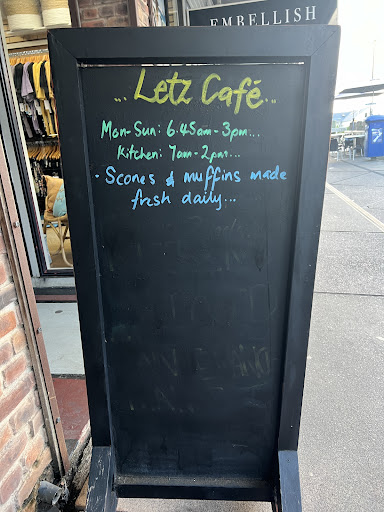 EMBELLISH
... Letz Café...
Mon-Sun: 6.45am-3pm...
Kitchen: 7am-2pm...
• Scones & muffins made
fresh daily...